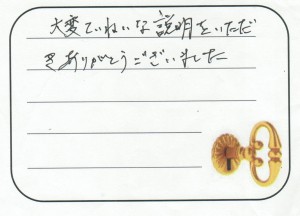 大変ていねいな説明をいただ
きありがとうございました